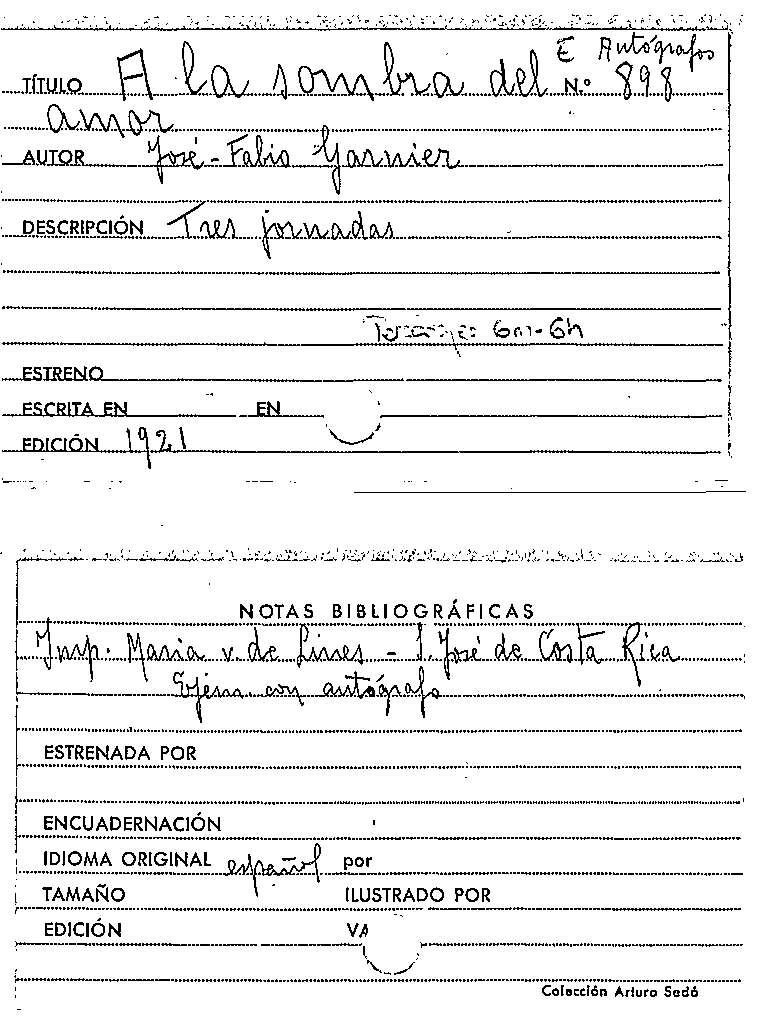 E Autógrafos
TÍTULO A la sombra del N.o 898
amor
AUTOR José-Fabio Garnier
DESCRIPCIÓN Tres jornadas
6m-6h
ESTRENO
ESCRITA EN EN
EDICIÓN 1921
NOTAS BIBLIOGRÁFICAS
Imp. Maria v. de Lines - S. José de Costa Rica
Ejem. con autógrafo
ESTRENADA POR
ENCUADERNACIÓN
IDIOMA ORIGINAL español por
TAMAÑO ILUSTRADO POR
EDICIÓN VA
Colección Arturo Sedó